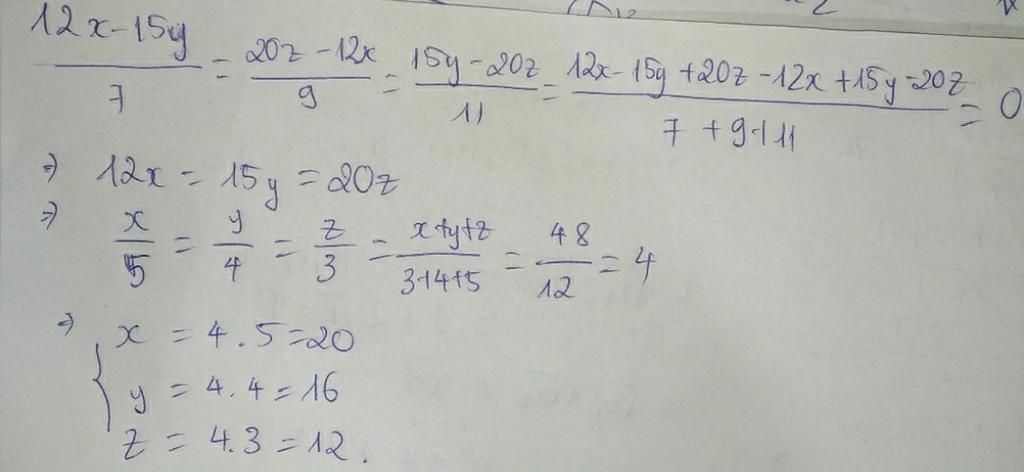 12x-15y/7 = 20z-12x/9 = 15y-20z/11 = 12x-15y+20z-12x+15y-20z/7+9+11 = 0
⇒ 12x = 15y = 20z
⇒ x/5 = y/4 = z/3 = x+y+z/3+4+5 = 48/12 = 4
⇒ { x = 4.5=20
y = 4.4=16
z = 4.3=12.